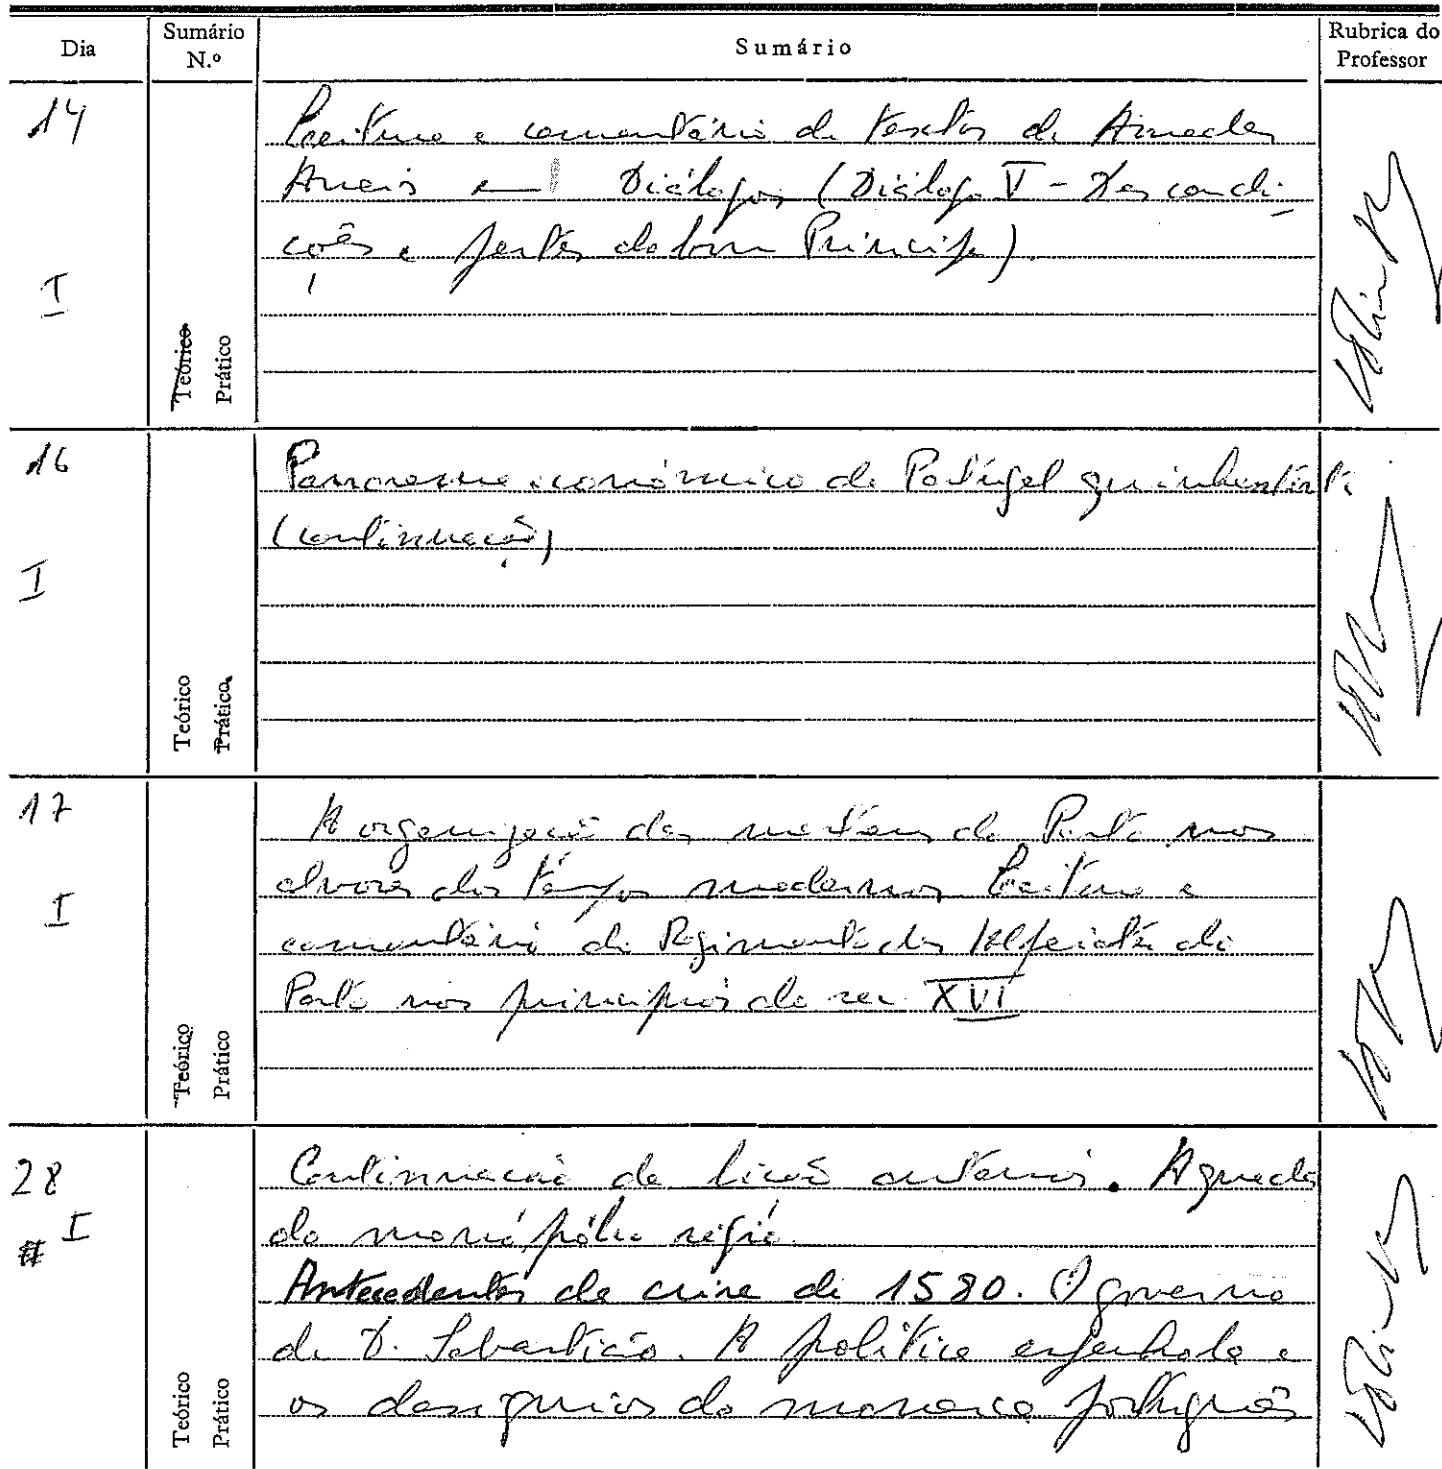 Dia
Sumário N.º
Sumário
Rubrica do Professor
14
I
Teórico
Prático
Leitura e comentário de textos de Amador
Arrais — Diálogos (Diálogo V - Das condi-
ções e partes do bom Príncipe).
16
I
Teórico
Prático
Panorama económico de Portugal quinhentista
(continuação)
17
I
Teórico
Prático
A organização dos mesteres do Porto nos
alvores dos tempos modernos. Leitura e
comentário do Regimento dos Alfaiates do
Porto nos princípios do sec XVI
28
I
Teórico
Prático
Continuação da lição anterior. A queda
do monópólio régio.
Antecedentes da crise de 1580. O governo
de D. Sebastião. A política espanhola e
os desígnios do monarca português